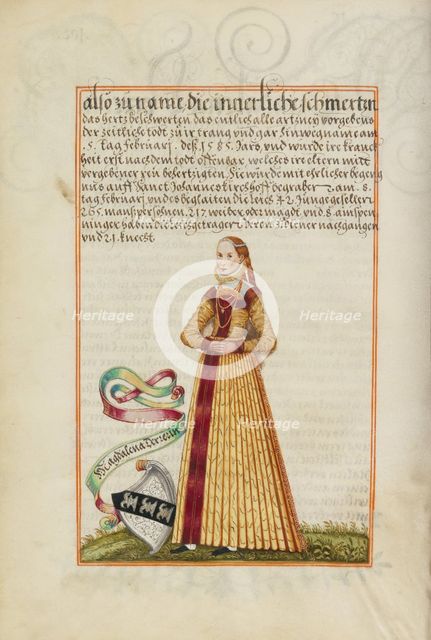 also zu name die innerliche schmertzn
das hertz beschwerten das entlich alle artzney vorgebens
der zeitliche todt zu ir trang vnd gar hinweg name am
5. tag februarj. deß 1585. Jars, vnd wurde ire kranck
heit erst nach dem todt offenbar, welches ire eltern mitt
vergebener zeÿ behertzigten. Sie wurde mit ehrlicher begeng
nus auff Sanct Johannes kirchhoff begraben am 8.
tag februarj vnd es beglaiten die leich 42 Junge geseller
265. mans personen. 217. weiber oder magdt vnd 8. am spen
ninger haben die leich getragen deren 8 diener nachgangen
vnd 21. knecht.
Magdalena Dererin
Heritage
Heritage
Heritage
Heritage
Heritage